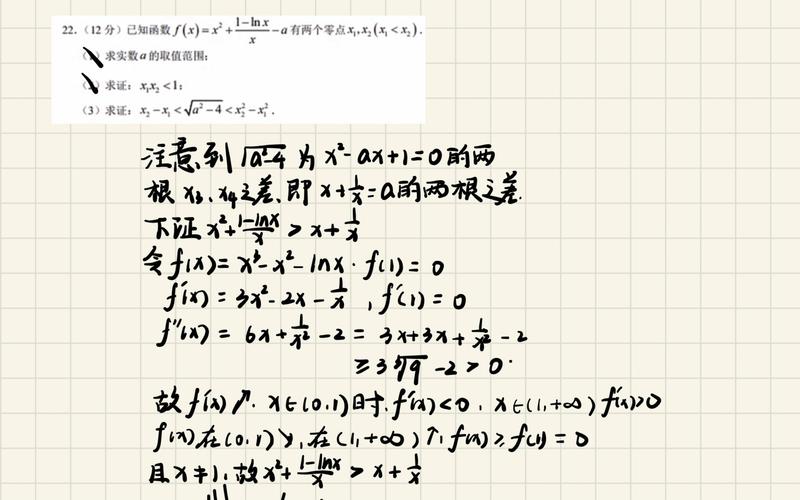 22.（12分）已知函数 f(x)=x²+(1-ln x)/x-a 有两个零点 x₁,x₂(x₁<x₂).
（1）求实数a的取值范围;
（2）求证: x₁x₂<1;
（3）求证: x₂-x₁<√(a²-4)<x₂²-x₁².
注意到 √(a²-4) 为 x²-ax+1=0 的两
根 x₃、x₄之差,即 x+1/x=a的两根之差.
下证 x²+(1-lnx)/x > x+1/x
令 f(x)=x³-x²-lnx. f(1)=0
f'(x)=3x²-2x-1/x ,f'(1)=0
f''(x)=6x+1/x²-2=3x+3x+1/x²-2
≥3∛9-2>0.
故 f'(x)↗. x∈(0,1)时,f'(x)<0, x∈(1,+∞) f'(x)>0
f(x)在(0,1)↘,在(1,+∞)↑,f(x)≥f(1)=0
且x≠1,故x²+(1-lnx)/x > x+1/x